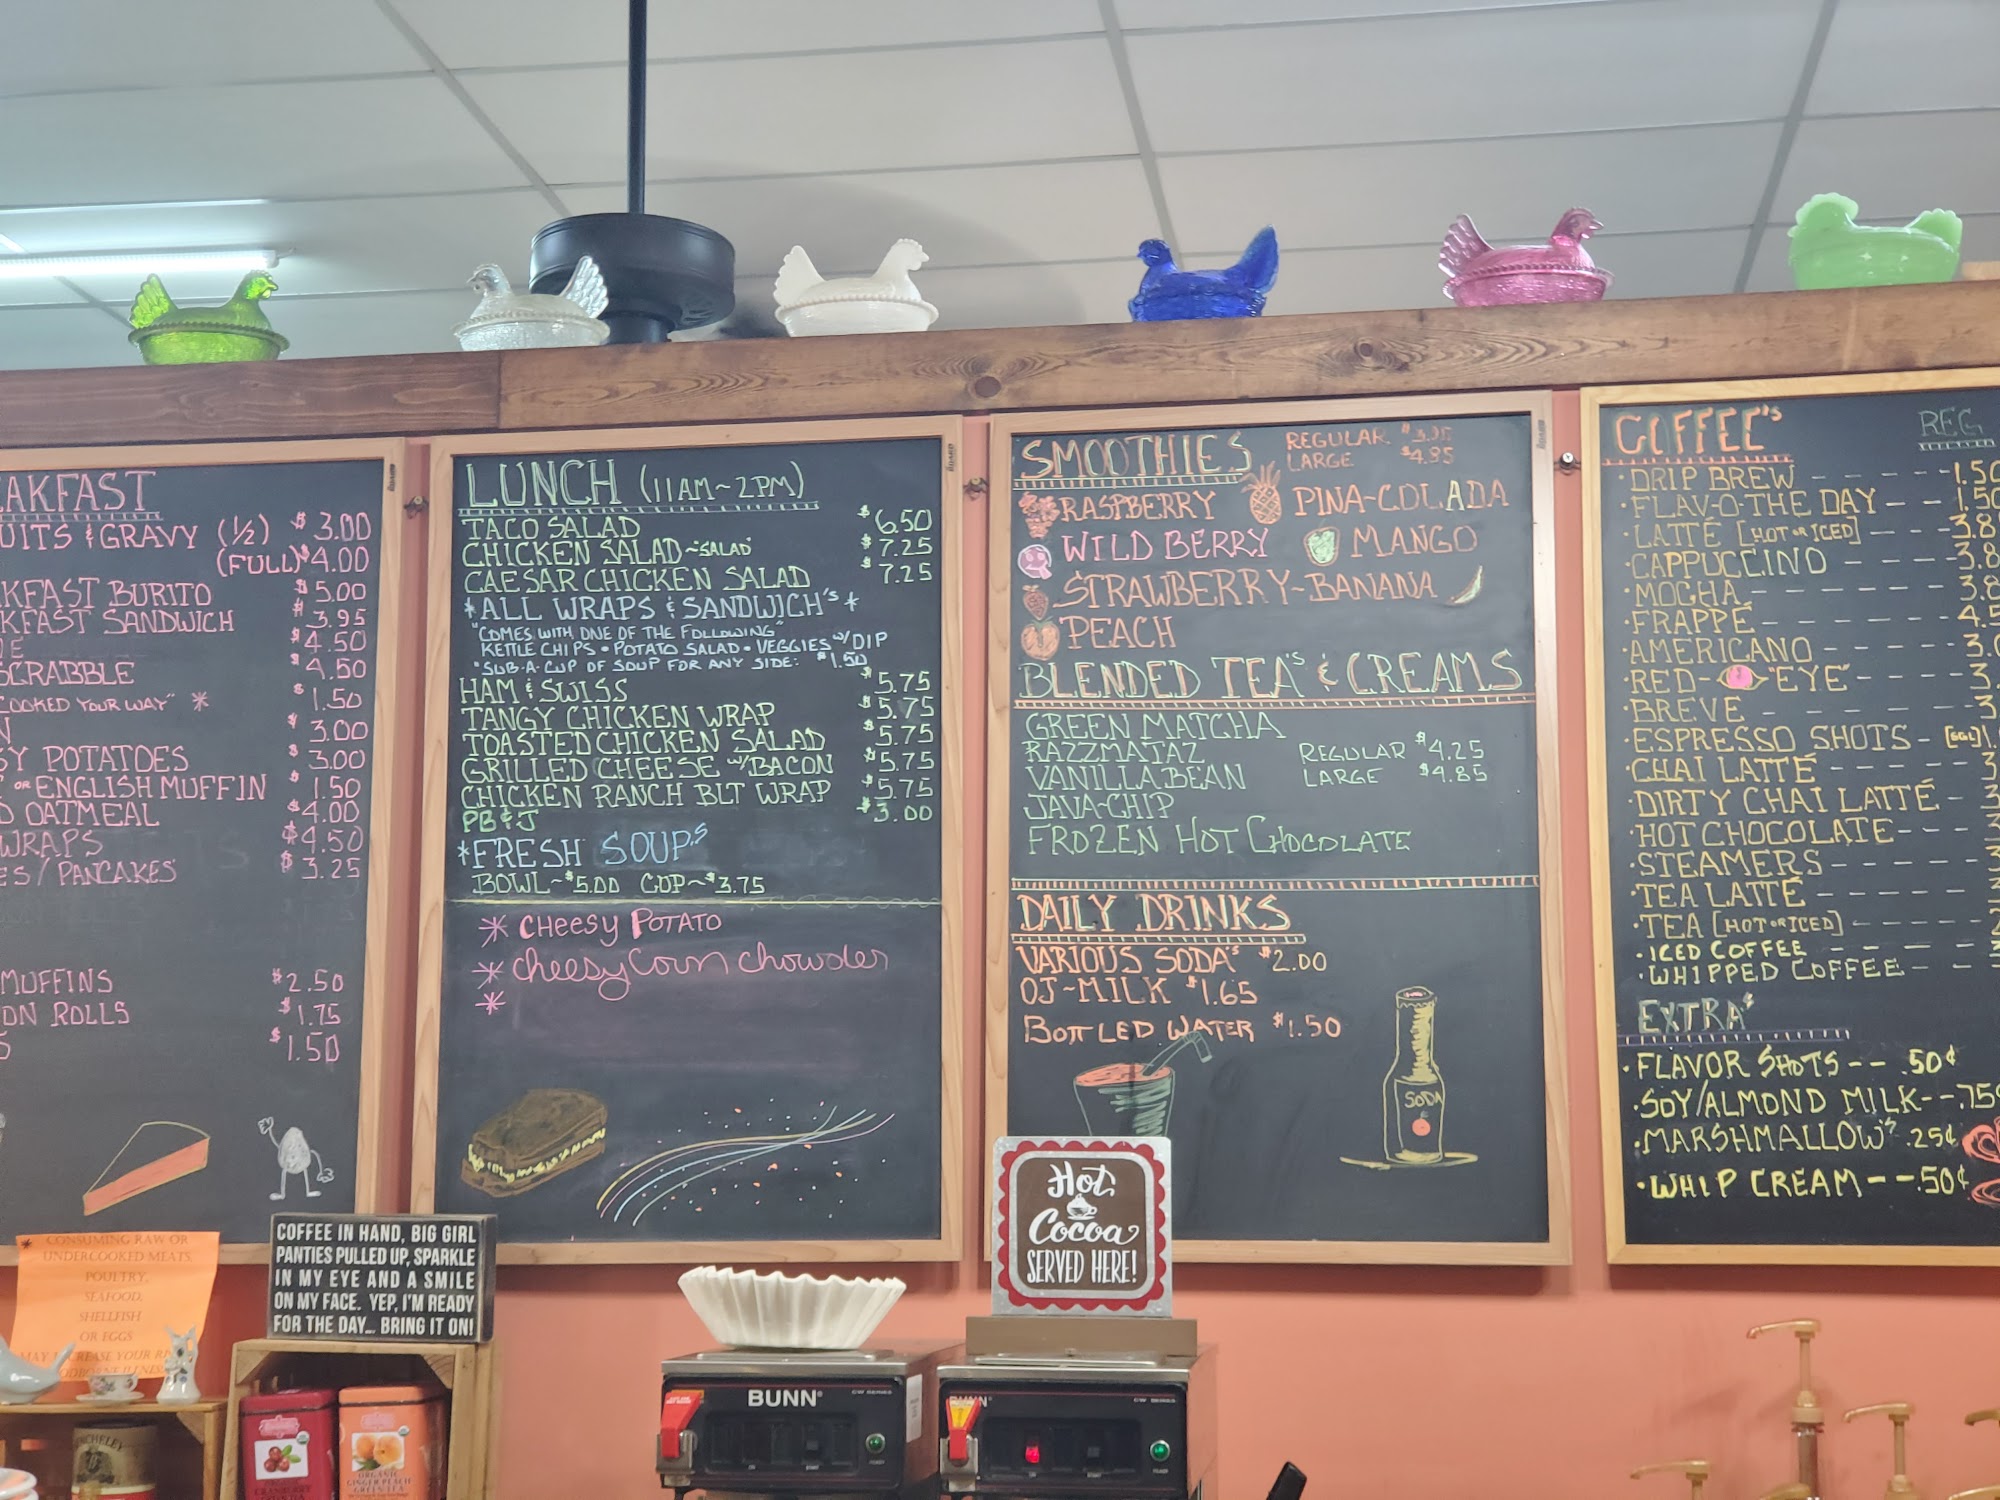 AKFAST
UITS & GRAVY (½) $3.00
(FULL) $4.00
KFAST BURITO $5.00
KFAST SANDWICH $3.95
E $4.50
SCRABBLE $4.50
COOKED YOUR WAY" * $1.50
N $3.00
SY POTATOES $3.00
OR ENGLISH MUFFIN $1.50
D OATMEAL $4.00
WRAPS $4.50
ES/PANCAKES $3.25
MUFFINS $2.50
ON ROLLS $1.75
S $1.50
LUNCH (11AM~2PM)
TACO SALAD $6.50
CHICKEN SALAD~"SALAD" $7.25
CAESAR CHICKEN SALAD $7.25
*ALL WRAPS & SANDWICH'S*
"COMES WITH ONE OF THE FOLLOWING"
KETTLE CHIPS • POTATO SALAD • VEGGIES W/DIP
*SUB•A•CUP OF SOUP FOR ANY SIDE: $1.50
HAM & SWISS $5.75
TANGY CHICKEN WRAP $5.75
TOASTED CHICKEN SALAD $5.75
GRILLED CHEESE W/BACON $5.75
CHICKEN RANCH BLT WRAP $5.75
PB&J $3.00
*FRESH SOUP'S
BOWL~$5.00 CUP~$3.75
* CHEESY POTATO
* Cheesy Corn Chowder
*
SMOOTHIES
REGULAR $3.95
LARGE $4.95
RASPBERRY PINA-COLADA
WILD BERRY MANGO
STRAWBERRY-BANANA
PEACH
BLENDED TEA'S & CREAMS
GREEN MATCHA
RAZZMATAZ REGULAR $4.25
VANILLA BEAN LARGE $4.85
JAVA-CHIP
FROZEN HOT CHOCOLATE
DAILY DRINKS
VARIOUS SODA'S $2.00
OJ~MILK $1.65
BOTTLED WATER $1.50
SODA
COFFEE'S REG
•DRIP BREW - - - - 1.50
•FLAV-O-THE DAY - - 1.50
•LATTÉ [HOT OR ICED] - - 3.8
•CAPPUCCINO - - - 3.8
•MOCHA - - - - - 3.8
•FRAPPÉ - - - - - 4.5
•AMERICANO - - - - 3.0
•RED-"EYE" - - - 3.
•BREVE - - - - - - 3
•ESPRESSO SHOTS - [SGL] 1.
•CHAI LATTÉ - - - - 3
•DIRTY CHAI LATTÉ - 3
•HOT CHOCOLATE - - - 3
•STEAMERS - - - - - 3
•TEA LATTÉ - - - - 3
•TEA [HOT OR ICED] - - - - 2
•ICED COFFEE - - - - 3
•WHIPPED COFFEE - - 3
EXTRA'S
•FLAVOR SHOTS - - .50¢
•SOY/ALMOND MILK - - .75¢
•MARSHMALLOW'S .25¢
•WHIP CREAM - - .50¢
* CONSUMING RAW OR
UNDERCOOKED MEATS,
POULTRY,
SEAFOOD,
SHELLFISH
OR EGGS
MAY INCREASE YOUR RI
ODBORNE ILLNESS
COFFEE IN HAND, BIG GIRL
PANTIES PULLED UP, SPARKLE
IN MY EYE AND A SMILE
ON MY FACE. YEP, I'M READY
FOR THE DAY... BRING IT ON!
Hot
Cocoa
SERVED HERE!
BUNN CW SERIES
BUNN CW SERIES
CRANBERRY
ORGANIC
GINGER PEACH
GREEN TEA